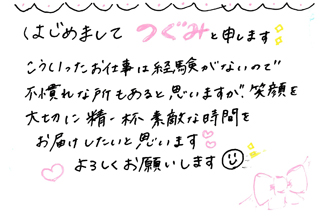 はじめまして つぐみと申します
こういったお仕事は経験がないので
不慣れな所もあると思いますが、笑顔を
大切に精一杯 素敵な時間を
お届けしたいと思います
よろしくお願いします